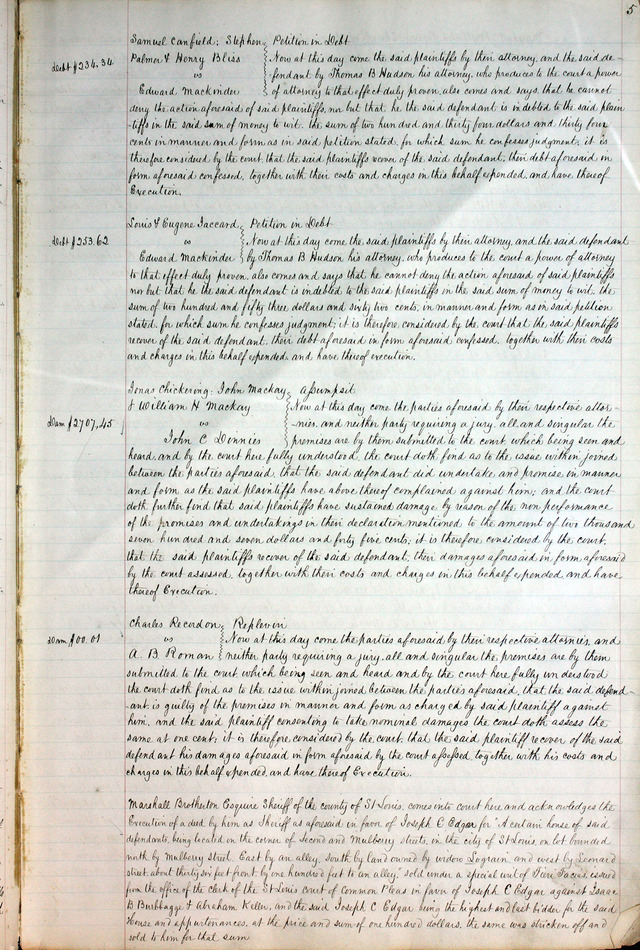 5
Samuel Canfield; Stephen Petition in Debt
Debt $234.34 Palmer & Henry Bliss Now at this day come the said plaintiffs by their attorney, and the said de-
vs fendant by Thomas B Hudson his attorney, who produces to the court a power
Edward Mackinder of attorney to that effect duly proven, also comes and says that he cannot
deny the action aforesaid of said plaintiffs, nor but that he the said defendant is indebted to the said plain
-tiffs in the said sum of money to wit, the sum of two hundred and thirty four dollars and thirty four
cents in manner and form as in said petition stated, for which sum he confesses judgment; it is
therefore considered by the court that the said plaintiffs recover of the said defendant, their debt aforesaid in
form aforesaid confessed, together with their costs and charges in this behalf expended, and have thereof
Execution.
Louis & Eugene Jaccard Petition in Debt
Debt $253.62 vs Now at this day come the said plaintiffs by their attorney, and the said defendant
Edward Mackinder by Thomas B Hudson his attorney, who produces to the court a power of attorney
to that effect duly proven, also comes and says that he cannot deny the action aforesaid of said plaintiffs
nor but that he the said defendant is indebted to the said plaintiffs in the said sum of money to wit, the
sum of two hundred and fifty three dollars and sixty two cents, in manner and form as in said petition
stated, for which sum he confesses judgment; it is therefore considered by the court that the said plaintiffs
recover of the said defendant, their debt aforesaid in form aforesaid confessed, together with their costs
and charges in this behalf expended, and have thereof execution.
Jonas Chickering; John Mackay Assumpsit
& William H Mackay Now at this day come the parties aforesaid by their respective attor-
Dam $2707,45 vs -nies, and neither party requiring a jury, all and singular the
John C Dinnies premises are by them submitted to the court which being seen and
heard, and by the court here fully understood, the court doth find as to the issue within joined
between the parties aforesaid, that the said defendant did undertake and promise in manner
and form as the said plaintiffs have above thereof complained against him; and the court
doth further find that said plaintiffs have sustained damage by reason of the non performance
of the promises and undertakings in their declaration mentioned to the amount of two thousand
seven hundred and seven dollars and forty five cents; it is therefore considered by the court,
that the said plaintiffs recover of the said defendant, their damages aforesaid in form aforesaid
by the court assessed, together with their costs and charges in this behalf expended and have
thereof Execution.
Charles Recordon Replevin
Dam $00.01 vs Now at this day come the parties aforesaid by their respective attornies, and
A. B Roman neither party requiring a jury, all and singular the premises are by them
submitted to the court which being seen and heard and by the court here fully understood
the court doth find as to the issue within joined between the parties aforesaid, that the said defend-
-ant is guilty of the premises in manner and form as charged by said plaintiff against
him, and the said plaintiff consenting to take nominal damages the court doth assess the
same at one cent; it is therefore considered by the court, that the said plaintiff recover of the said
defendant his damages aforesaid in form aforesaid by the court assessed, together with his costs and
charges in this behalf expended, and have thereof Execution.
Marshall Brotherton Esquire Sheriff of the county of St Louis, comes into court here and acknowledges the
Execution of a deed by him as Sheriff as aforesaid in favor of Joseph C Edgar for "A certain house of said
defendants, being located on the corner of Second and Mulberry streets, in the city of St Louis on lot bounded
north by Mulberry street, East by an alley, South by land owned by widow Lograin, and west by Leonard
street, about thirty six feet front by one hundred feet to an alley," sold under a special writ of Fieri Facias, issued
from the office of the clerk of the St Louis court of Common Pleas in favor of Joseph C Edgar against Isaac
B Burbbagge & Abraham Keller, and the said Joseph C Edgar being the highest and last bidder for the said
House and appurtenances, at the price and sum of one hundred dollars, the same was stricken off and
sold to him for that sum